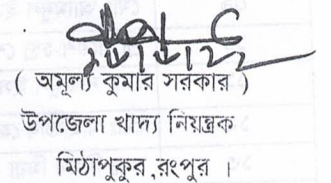 ( অমূল্য কুমার সরকার )
উপজেলা খাদ্য নিয়ন্ত্রক
মিঠাপুকুর,রংপুর ।